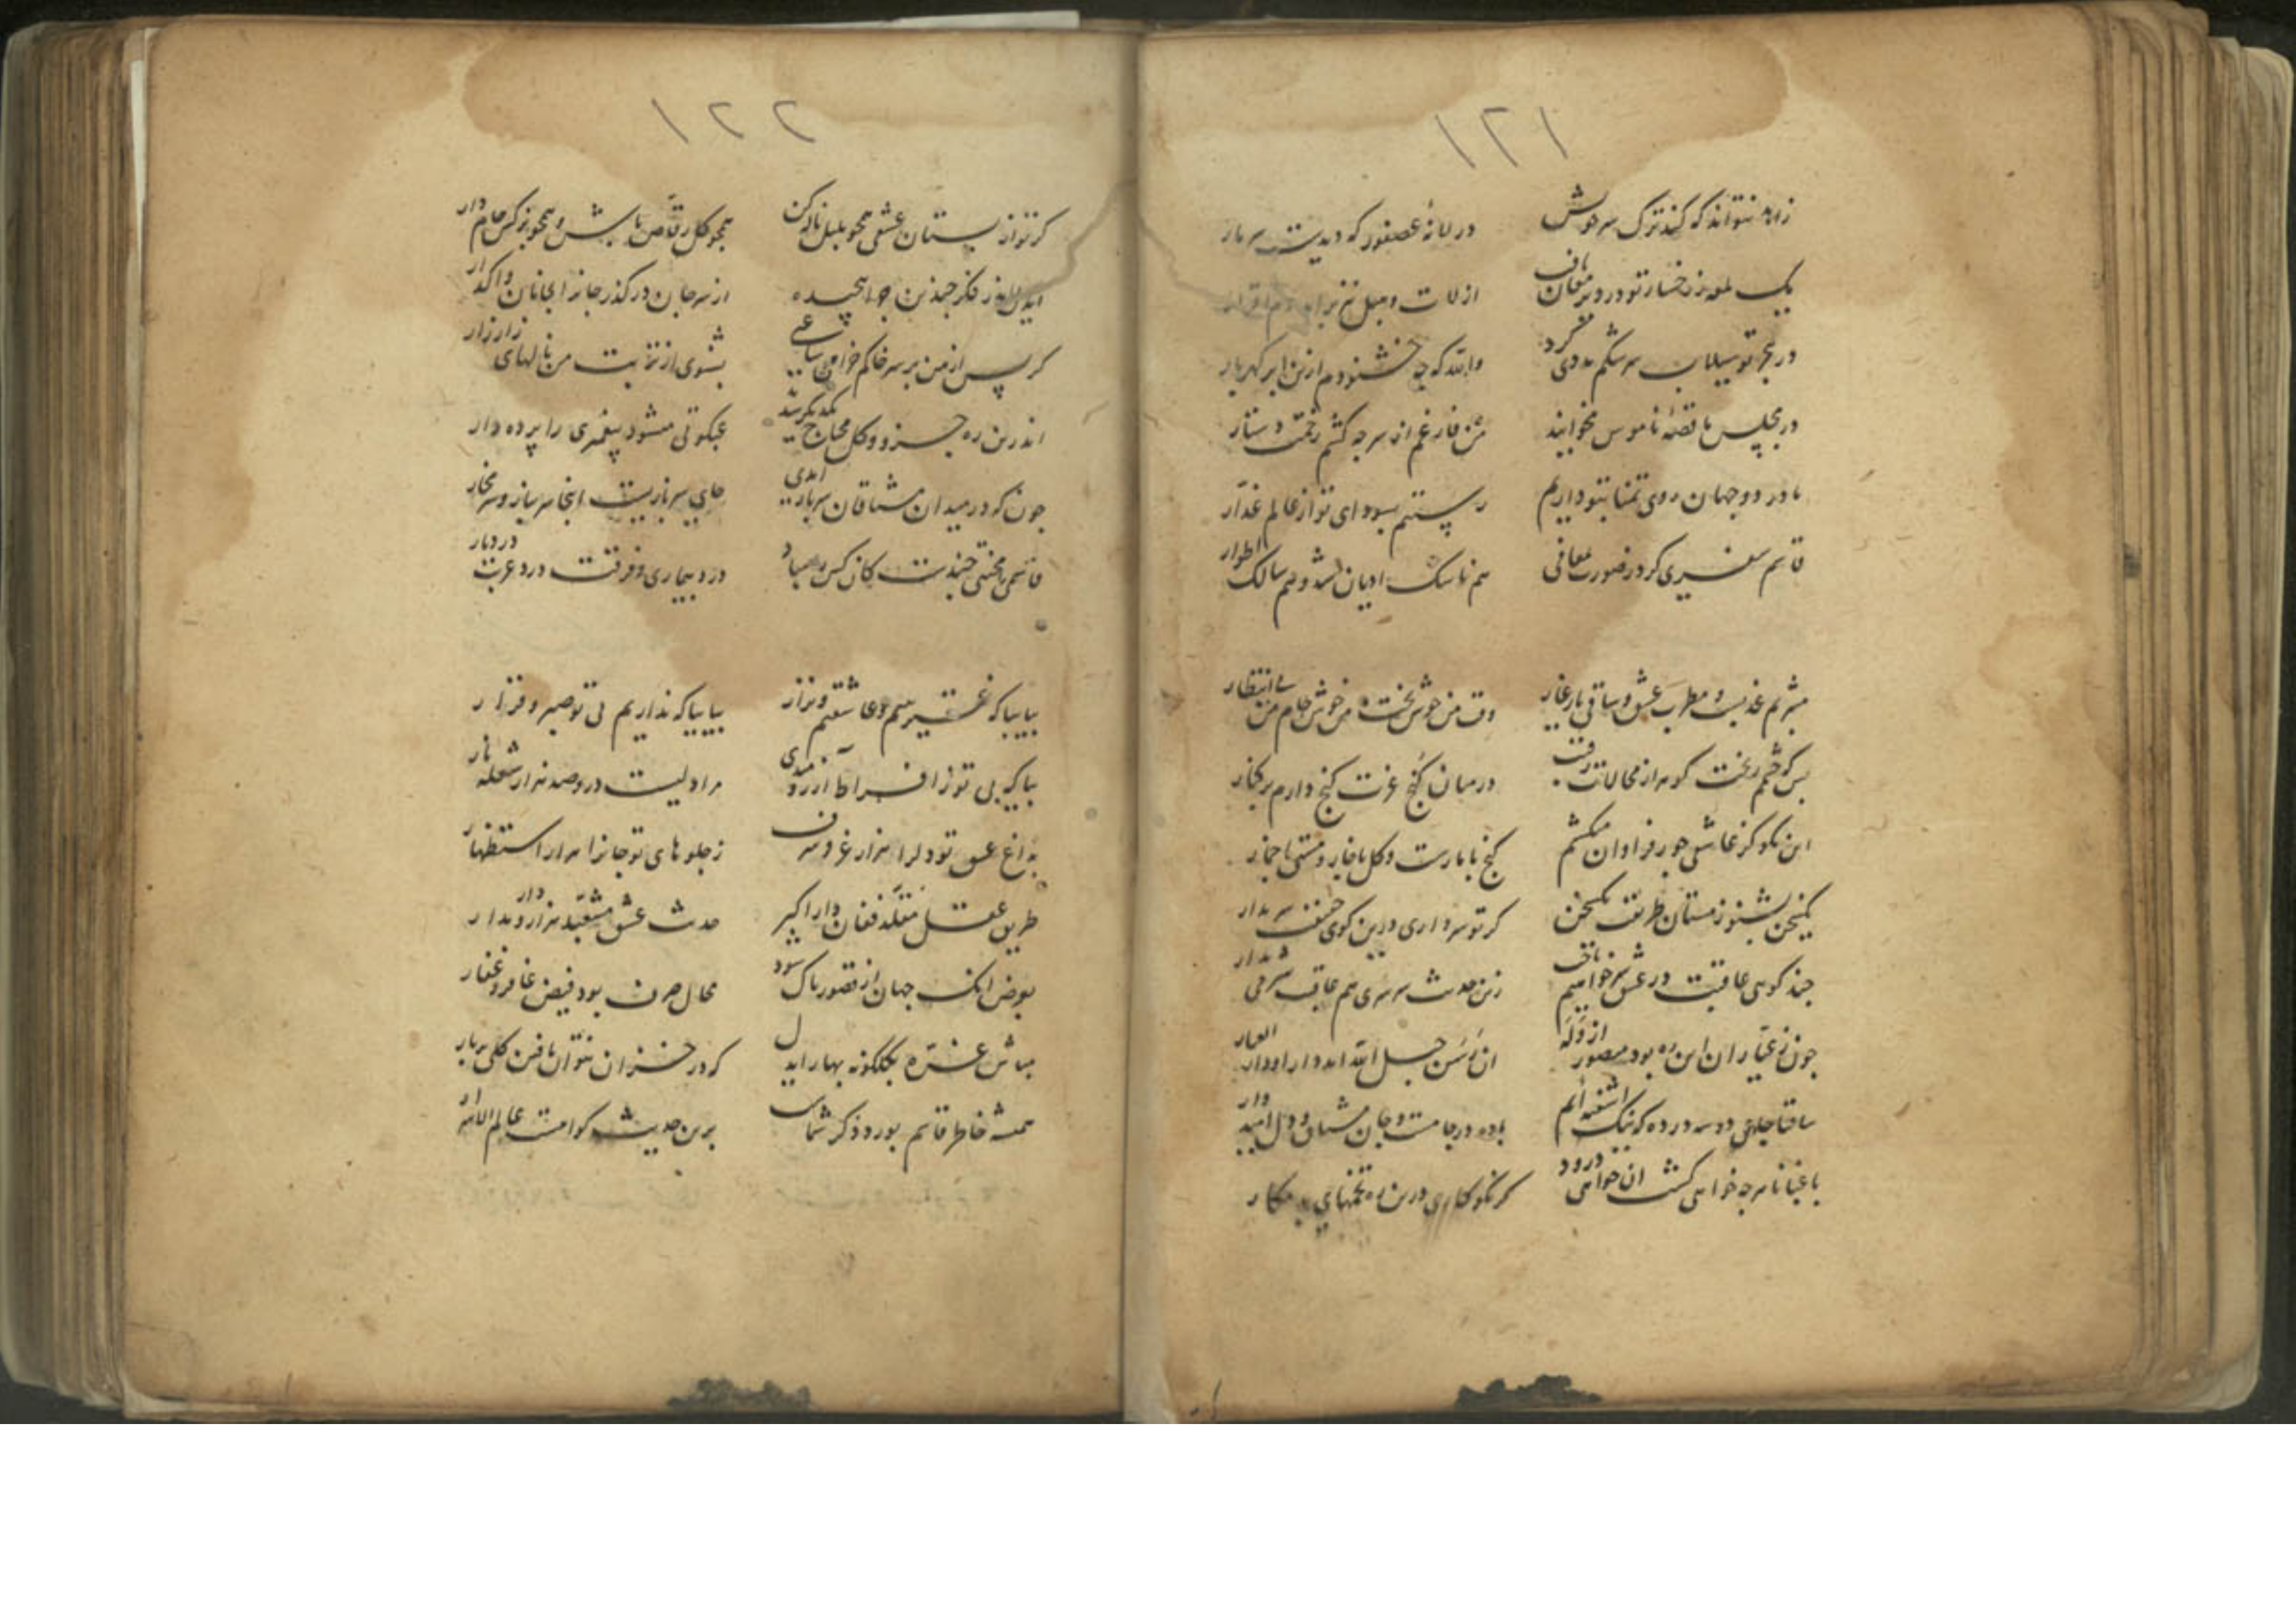 ۱۲۱
زاهد نتواند که کند ترک سر خویش در لانهٔ عصفور که دیدست
یک لمعه ز رخسار تو در دیر مغان تافت از لات و هبل نیز برآمد
در هجر تو سیلاب سرشکم مددی کرد والله که چه خشنودم ازین ابر گهربار
در مجلس ما قصهٔ ناموس مخوانید من فارغم از هرچه کشم رخت و دستار
ما در دو جهان روی تمنا بتو داریم رستیم بسودای تو از عالم غدار
قاسم سفری کرد ز صورت بمعانی هم ناسک ادیان شد و هم سالک اطوار
وقت من خوش بخت من خوش جام من بی انتظار
بس که چشمم ریخت گوهر از محالات رفت در میان کنج عزت گنج دارم بر کنار
این نکو کز عاشقی جور فراوان میکشم گنج با مارست و گل با خار و مستی با خمار
یک سخن بشنو ز مستان طریقت یک سخن گر تو سر داری درین کوی حقیقت سر بدار
چند گوی عاقبت در عشق سر خواهیم باخت زین حدیث سرسری هم عاقبت شرمی بدار
چون ز عیاران این ره بود منصور از وله
ساقیا جامی دو سه در ده که نیک آشفته‌ایم باده در جامست و جان مشتاق و دل امیدوار
باغبانا هرچه خواهی کشت آن خواهی درود گر نکوکاری درین ره تخمهای بد مکار
۱۲۲
گر تو از بستان عشقی همچو بلبل ناله کن همچو گل رقاص باش و همچو نرگس جام دار
از سر جان درگذر جانرا بجانان واگذار
گر پس از من بر سر خاکم خرامی ساعتی بشنوی از تربت من نالهای زار زار
اندرین ره جزو و کل محتاج یکدیگر شدند عنکبوتی میشود پیغمبری را پرده دار
چون که در میدان مشتاقان سربازآمدی جای سربازیست اینجا سر بباز و سر مخار
درد بیماری و فرقت درد غربت درد یار
بیا بیا که غریبیم و عاشقیم و نزار بیا بیا که نداریم بی تو صبر و قرار
بیا که بی تو ز افراط آرزومندی مرا دلیست درو صد هزار شعله نار
بداغ عشق تو دلرا هزار عز و شرف ز جلوهای تو جانرا هزار استظهار
طریق عقل مقلد فغان و داراگیر حدیث عشق مشعبد هزار و دار
بعوض آنک جهان از قصور پاک شود محال صرف بود فیض غافر و غفار
مباش غره بگلگونهٔ بهار ای دل که در خزان نتوان یافتن گلی بر بار
همیشه خاطر قاسم بورد و ذکر شماست برین حدیث گواهست عالم الاسرار